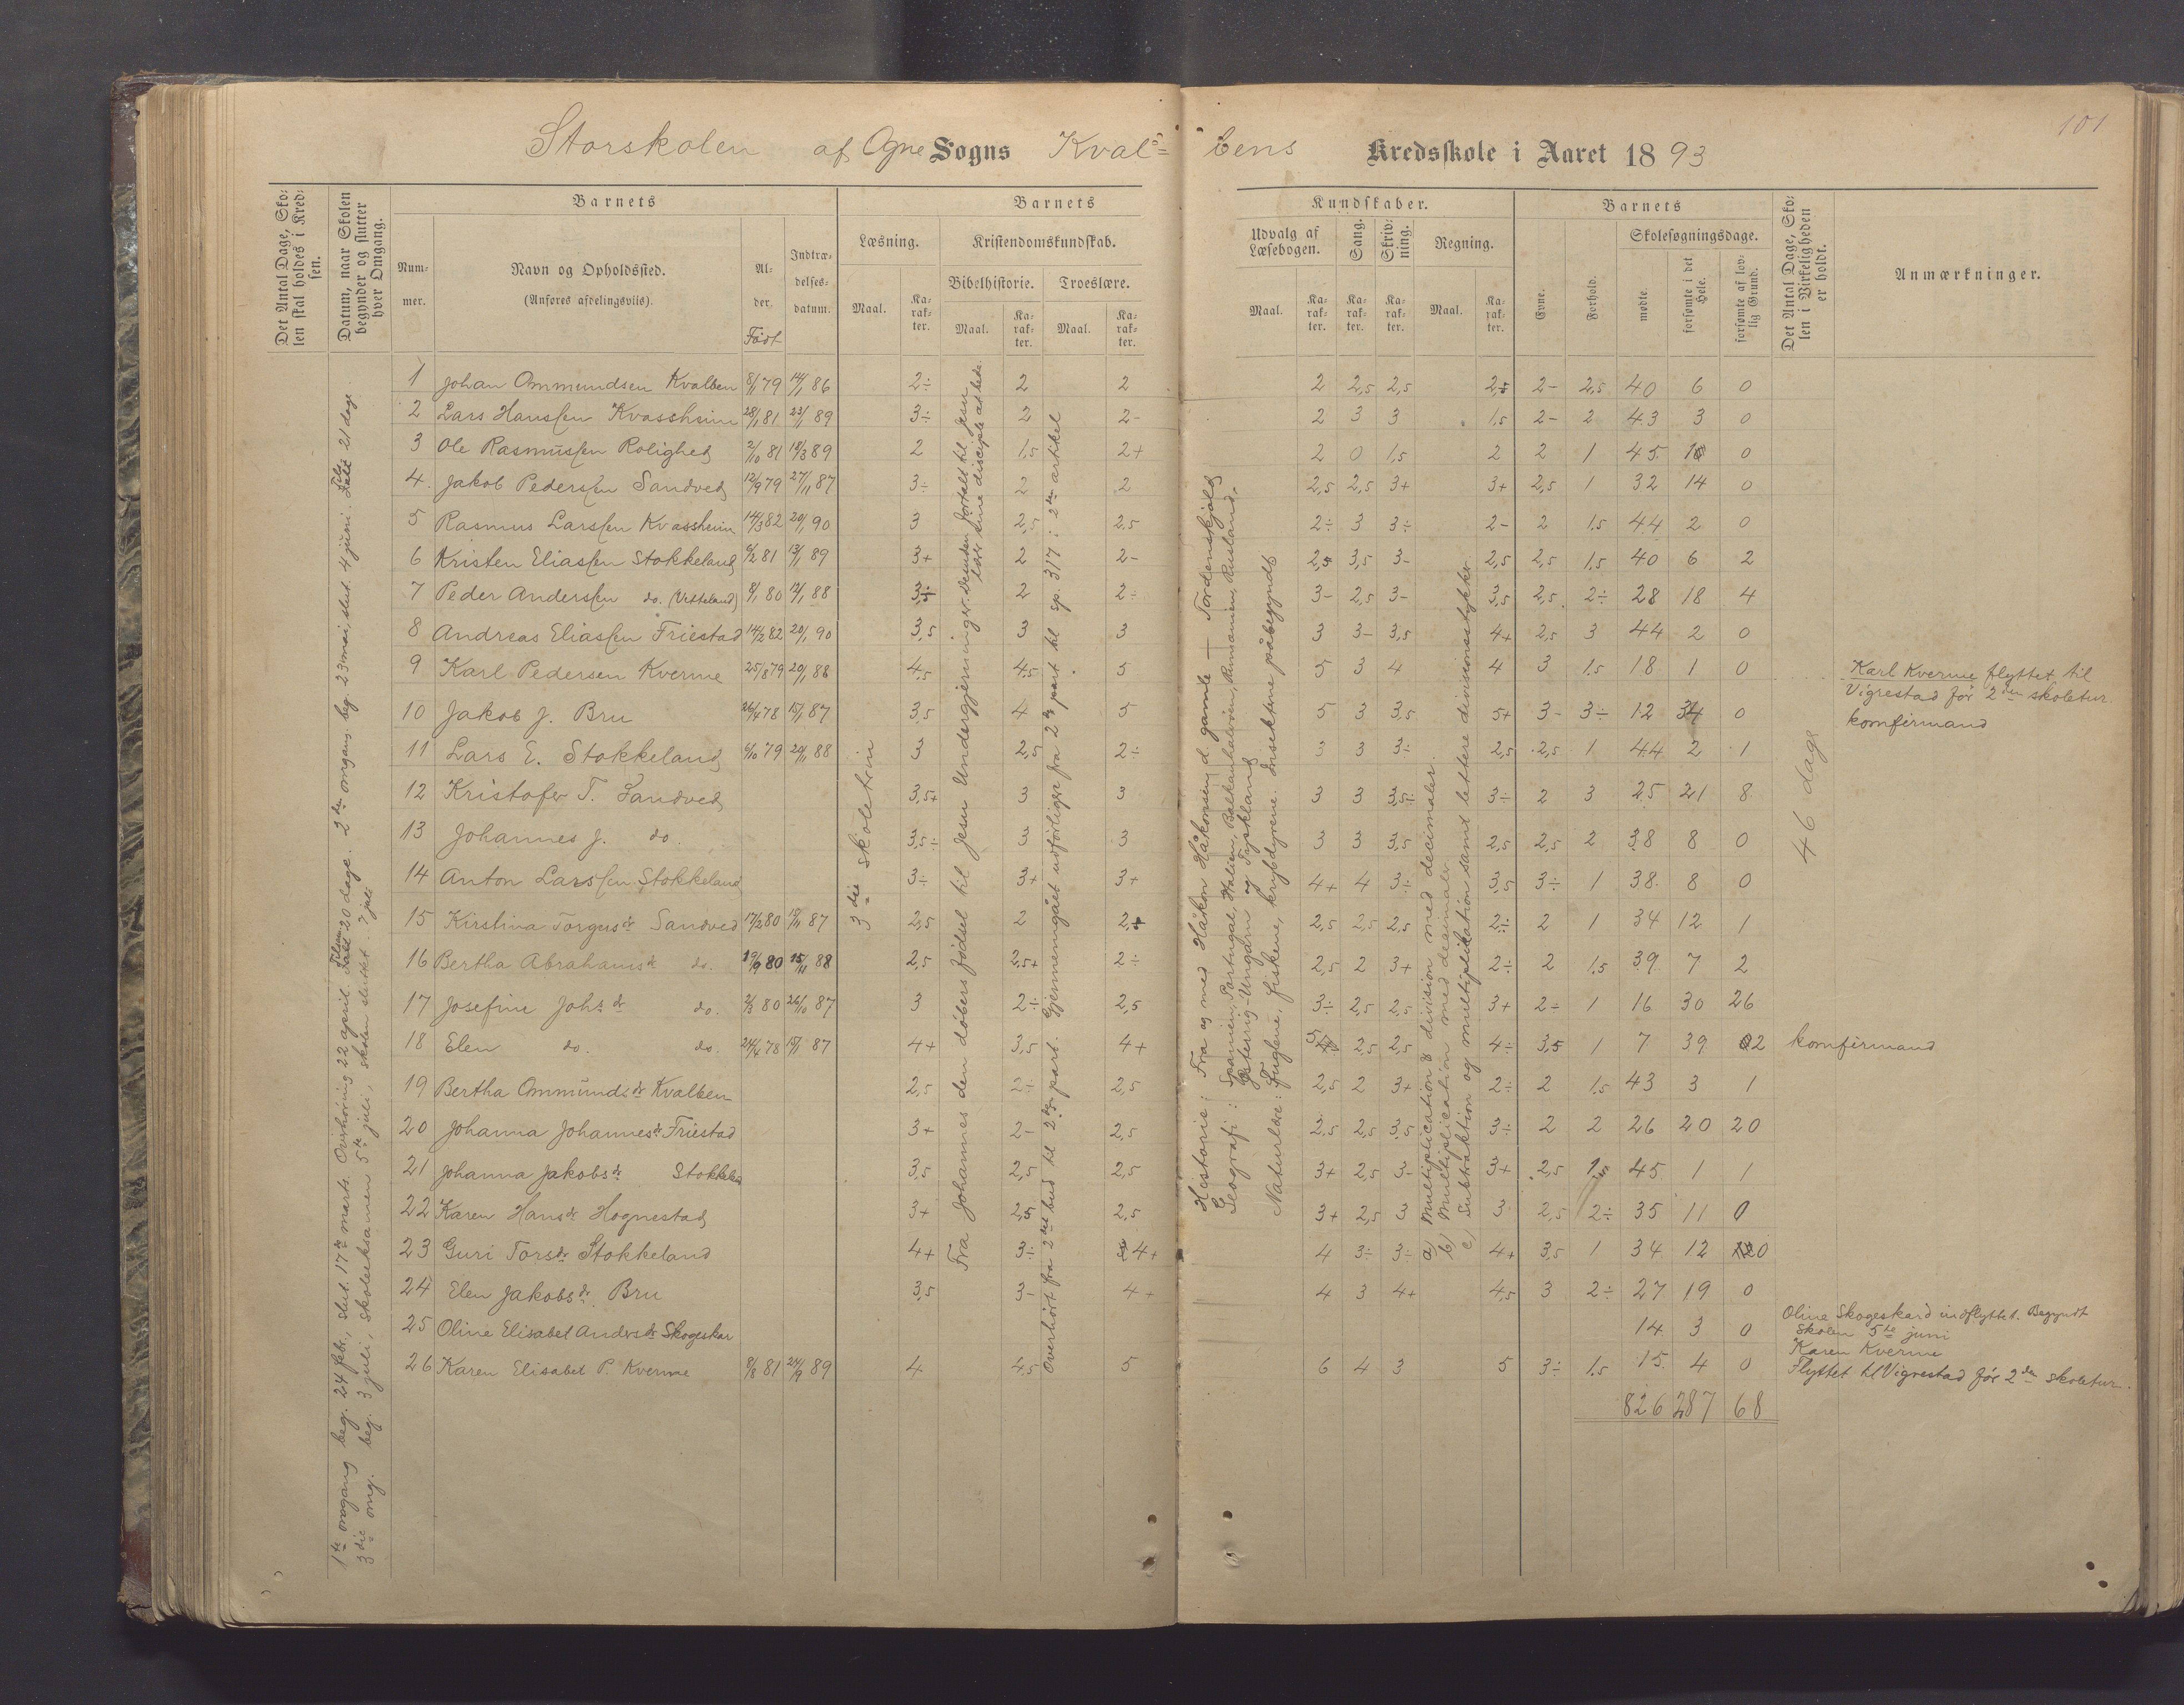 101
Storskolen af Ogne Sogns Kval=
bens Kredsskole i Aaret 1893
Det Antal Dage, Sko-
len skal holdes i Kred-
sen.
Datum, naar Skolen
begynder og slutter
hver Omgang.
Barnets
Num-
mer.
Navn og Opholdssted.
(Anføres afdelingsviis).
Al-
der.
Født
Indtræ-
delses-
datum.
Barnets
Læsning.
Kristendomskundskab.
Bibelhistorie.
Troeslære.
Maal.
Ka-
rak-
ter.
Maal.
Ka-
rak-
ter.
Maal.
Ka-
rak-
ter.
Kundskaber.
Udvalg af
Læsebogen.
Sang.
Skriv-
ning.
Regning.
Maal.
Ka-
rak-
ter.
Ka-
rak-
ter.
Ka-
rak-
ter.
Maal.
Ka-
rak-
ter.
Barnets
Evne.
Forhold.
Skolesøgningsdage.
mødte.
forsømte i det
Hele.
forsømte af lov-
lig Grund.
Det Antal Dage, Sko-
len i Virkeligheden
er holdt.
Anmærkninger.
1te omgang beg. 24 febr., slut. 17de marts. Overhøring 22 april. Tilsam 20 dage. 2den omgang beg. 23 mai, slut. 4 juni. Tils. 21 dage.
3die omg. beg. 3 juli, skoleeksamen 5te juli, skolen sluttet 7 juli
3die skoletrin
Fra Johannes den døbers fødsel til Jesu Undergjerninger. Desuden fortalt til Jesu
lærer sine disciple at bede.
Overhørt fra 2det bud til 2den part. Gjennemgået udførligere fra 2den part til sp. 317 i 2den artikel
Historie: Fra og med Håkon Håkonsen d. gamle — Tordenskjold
Geografi: Spanien, Portugal, Italien, Balkanhalvøen, Rumænien, Rusland,
Østerrig-Ungarn og Tyskland
Naturlære: Fuglene, fiskene, krybdyrene. Insekterne påbegyndt
a) Multiplication & division med decimaler.
b) Multiplication med decimaler
c) Subtraktion og multiplikation samt lettere divisionsstykker.
46 dage
1 Johan Ommundsen Kvalben 8/1 79 14/1 86 2÷ 2 2 2 2,5 2,5 2,5 2- 2,5 40 6 0
2 Lars Hanssen Kvassheim 28/1 81 23/1 89 3÷ 2 2- 2 3 3 1,5 2- 2 43 3 0
3 Ole Rasmussen Rolighed 2/10 81 18/3 89 2 1,5 2+ 2 0 1,5 2 2 1 45 1 0
4 Jakob Pedersen Sandved 12/9 79 27/11 87 3÷ 2 2 2,5 2,5 3+ 3+ 2,5 1 32 14 0
5 Rasmus Larssen Kvassheim 14/3 82 20/1 90 3 2,5 2,5 2÷ 3 3÷ 2- 2 1,5 44 2 0
6 Kristen Eliassen Stokkeland 6/2 81 13/1 89 3+ 2 2- 2,5 3,5 3- 2,5 2,5 1,5 40 6 2
7 Peder Anderssen do. (Vetteland) 8/1 80 12/1 88 3,5 2 2÷ 3- 2,5 3- 3,5 2,5 2÷ 28 18 4
8 Andreas Eliassen Friestad 14/2 82 20/1 90 3,5 3 3 3 3- 3,5 4+ 2,5 3 44 2 0
9 Karl Pedersen Kverme 25/8 79 20/1 88 4,5 4,5 5 5 3 4 4 3 1,5 18 1 0 Karl Kverme flyttet til
Vigrestad før 2den skoletur.
10 Jakob J. Bru 26/4 78 15/1 87 3,5 4 5 5 3 3,5 5+ 3- 3÷ 12 34 0 komfirmand
11 Lars E. Stokkeland 6/10 79 20/11 88 3 2,5 2÷ 3 3 3÷ 2,5 2,5 1 44 2 1
12 Kristofer T. Sandved 3,5+ 3 3 3 3 3,5÷ 3÷ 2 3 25 21 8
13 Johannes J. do. 3,5÷ 3 3 3 3 3,5 2,5 2,5 2 38 8 0
14 Anton Larssen Stokkeland 3÷ 3+ 3+ 4+ 4 3÷ 3,5 3÷ 1 38 8 0
15 Kirstina Torgusdr Sandved 17/2 80 15/11 87 2,5 2 2,5 2,5 2,5 2÷ 2 1 34 12 1
16 Bertha Abrahamsdr do. 19/9 80 15/11 88 2,5 2,5+ 2÷ 2,5 2 3+ 2÷ 2 1,5 39 7 2
17 Josefine Johsdr do. 2/3 80 26/10 87 3 2÷ 2,5 3÷ 2,5 2,5 3+ 2÷ 1 16 30 26
18 Elen do. do. 24/4 78 15/1 87 4+ 3,5 4+ 5 2,5 2,5 4÷ 3,5 1 7 39 2 komfirmand
19 Bertha Ommundsdr Kvalben 2,5 2÷ 2,5 2,5 2 3+ 2÷ 2 1,5 43 3 1
20 Johanna Johannesdr Friestad 3+ 2- 2,5 2,5 2,5 3,5 3÷ 2 2 26 20 20
21 Johanna Jakobsdr Stokkeland 3,5 2,5 2,5 3+ 2,5 3- 3+ 2,5 1,5 45 1 1
22 Karen Hansdr Hognestad 3+ 2,5 2,5 3+ 2,5 3 3 2,5 2÷ 35 11 0
23 Guri Torsdr Stokkeland 4+ 3÷ 4+ 4 3÷ 3÷ 4+ 3,5 1 34 12 0
24 Elen Jakobsdr. Bru 3,5 3- 4+ 4 3 4+ 4,5 3 2÷ 27 19 0
25 Oline Elisabet Andersdr Skogeskar 14 3 0 Oline Skogeskard indflyttet. Begyndt
skolen 5te juni
26 Karen Elisabet P. Kverme 8/8 81 24/9 89 4 4,5 5 6 4 3 5 3÷ 1,5 15 4 0 Karen Kverme
Flyttet til Vigrestad før 2den skoletur.
826 287 68